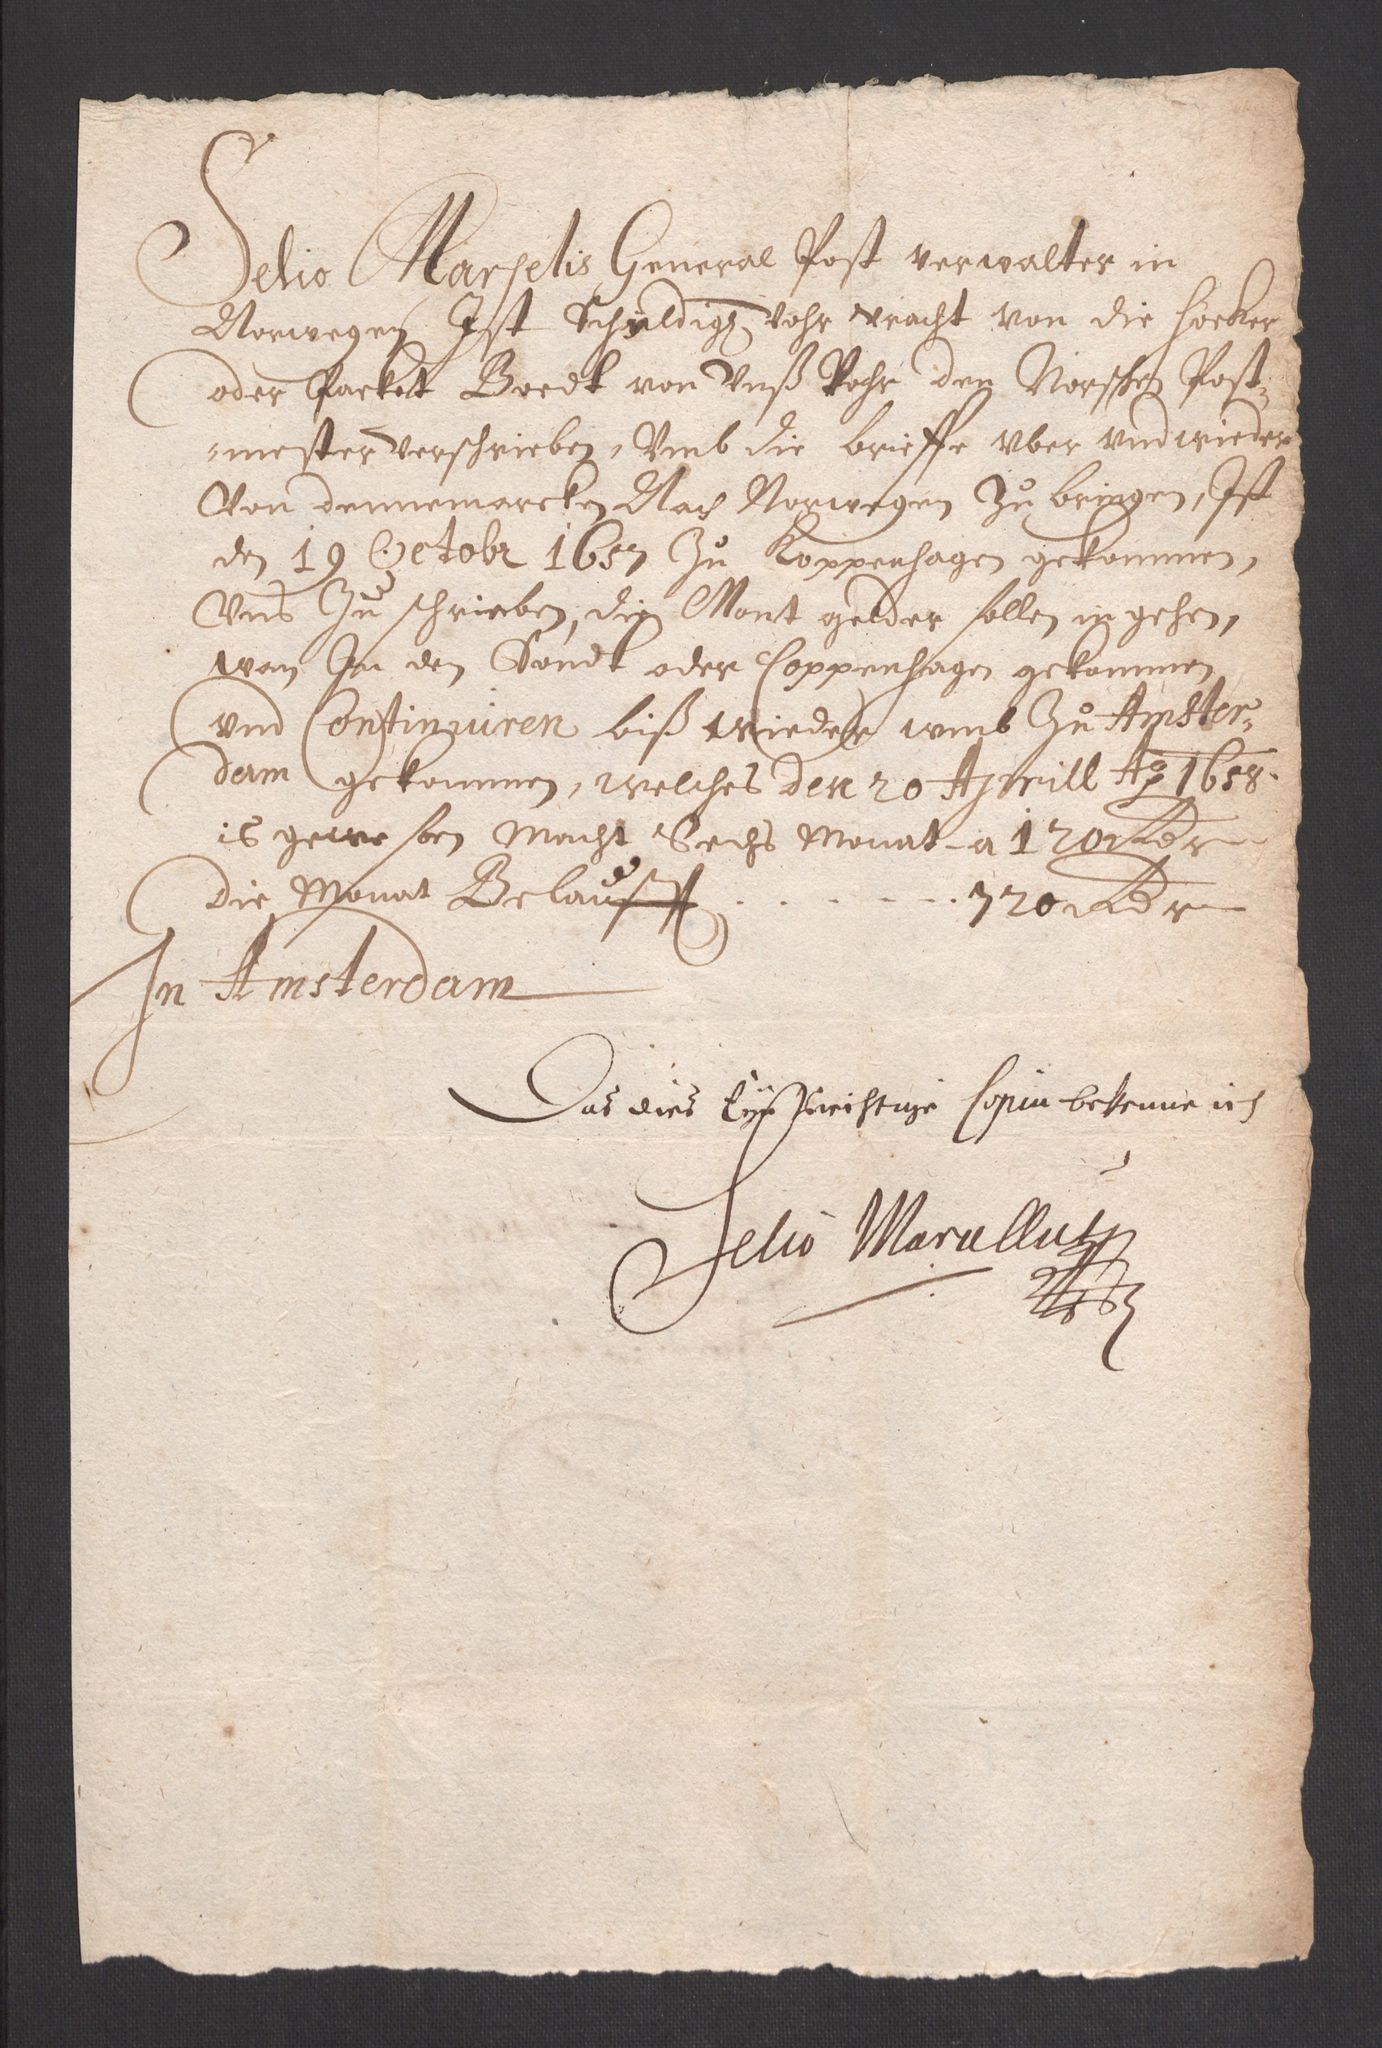 Selio Marselis General Post verwalter in
Norwegen Ist Schuldigh vohr vracht von die hoeker
oder Packet Boedt von Vnß Vohr den Norschen Post-
-mester verschrieben, Vmb die brieffe vber vnd wieder
Von dennemarcken Nach Norwegen Zu bringen, Ist
den 19 Octobr 1657 Zu Koppenhagen gekommen,
Vns Zu schrieben, die Mont gelder sollen in gehen,
wan In den Sondt oder Coppenhagen gekommen
vnd Continuiren biß wieder umb Zu Amster-
dam gekommen, welches den 20 Aprill Ao 1658
is gewesen Macht Sechs Monat a 120 Rdr
die Monat Belaufft . . . . . . . 720 Rdr
In Amsterdam
Das dies Copia bekenne ich
Selio Marsellus